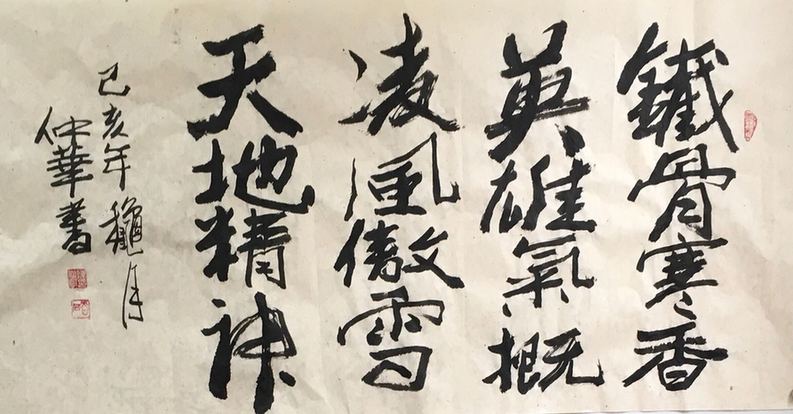 鐵骨寒香
英雄氣概
凌風傲雪
天地精神
己亥年龝月
仲華書